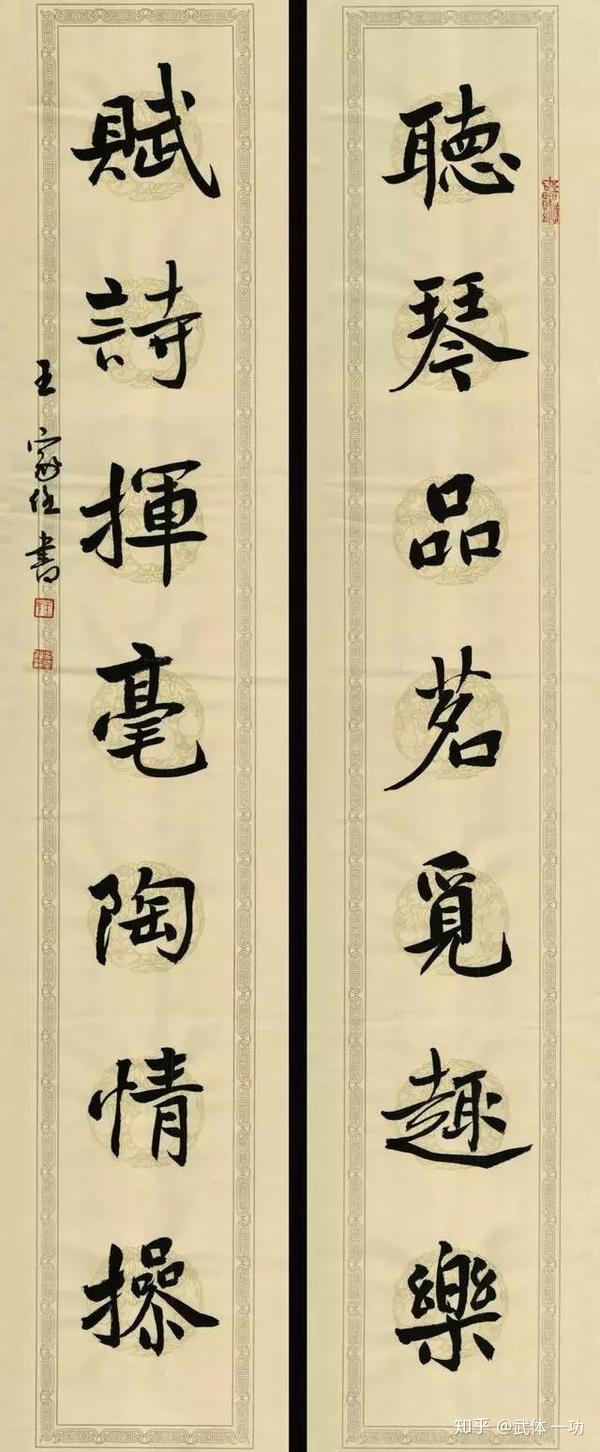 聽琴品茗覓趣樂
賦詩揮毫陶情操
王家伍書
知乎 @武体一功